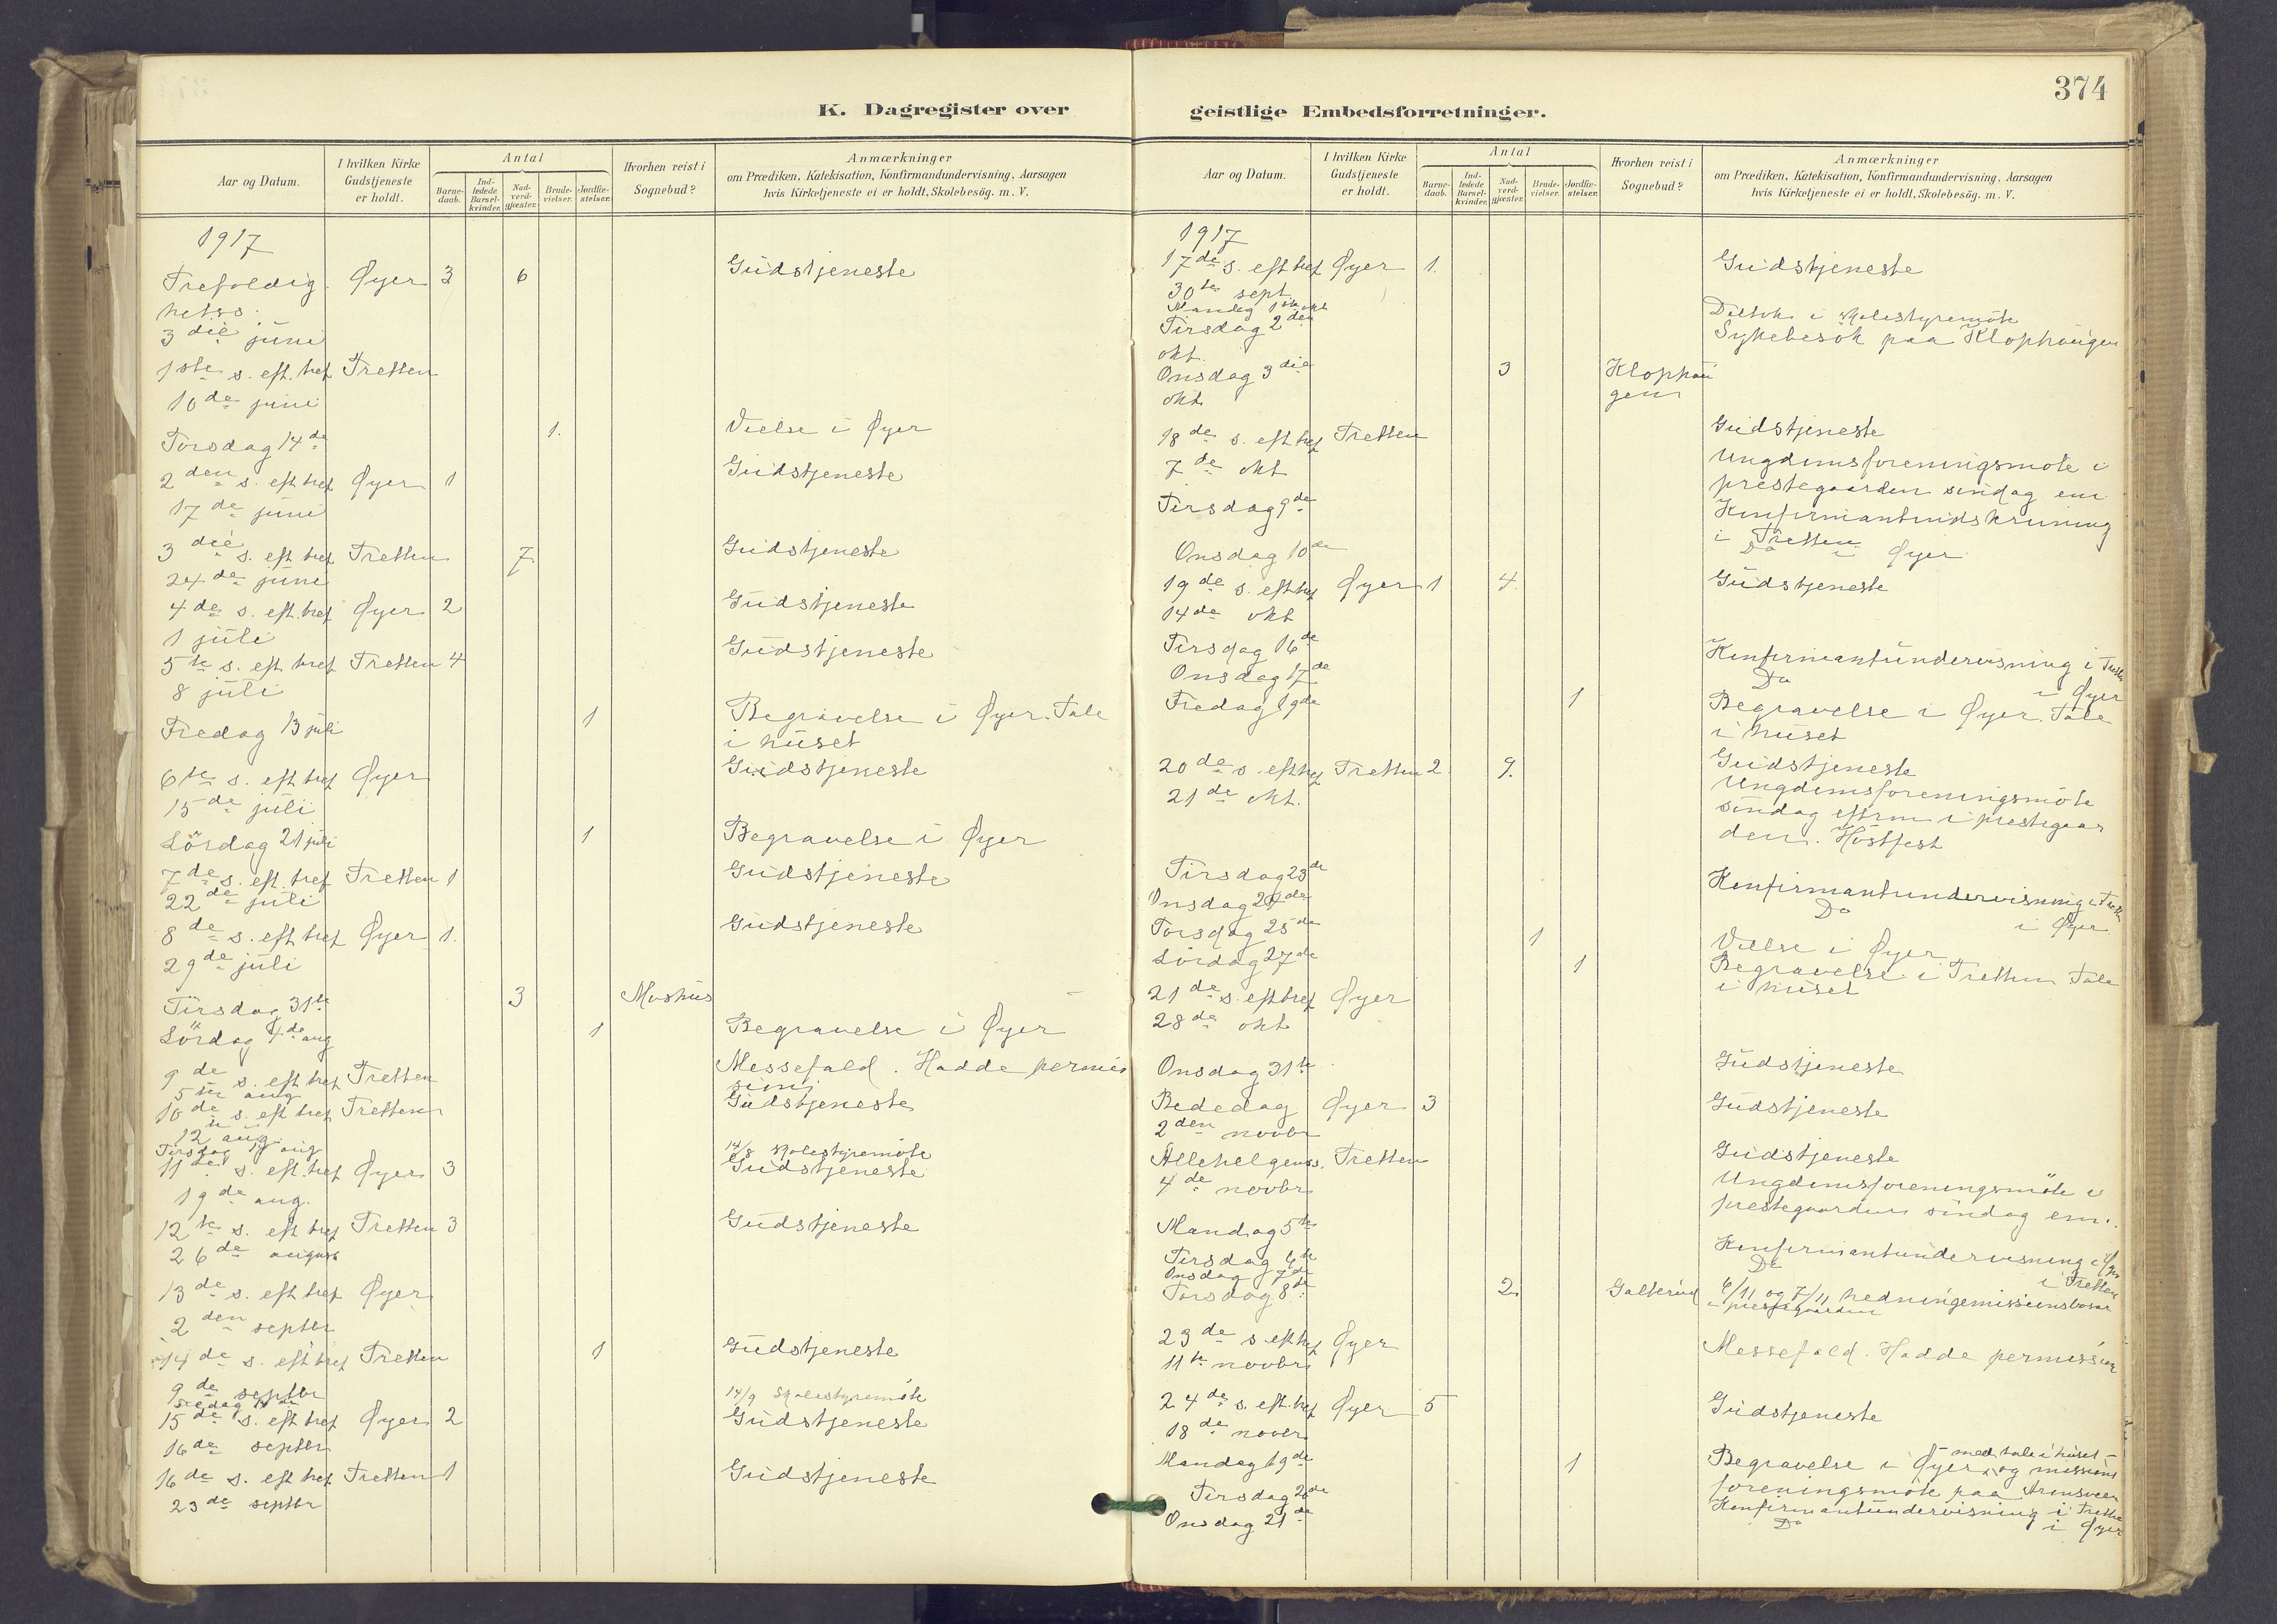 K. Dagregister over
Aar og Datum.
I hvilken Kirke Gudstjeneste er holdt.
Antal
Barnedaab.
Indledede Barselkvinder.
Nadverdgjæster.
Brudevielser.
Jordfæstelser.
Hvorhen reist i Sognebud?
Anmærkninger
om Prædiken, Katekisation, Konfirmandundervisning, Aarsagen
hvis Kirketjeneste ei er holdt, Skolebesög. m. V.
1917
Trefoldig Øyer 3 6 Gudstjeneste
hetss.
3die juni
1ste s. eft. tref Tretten
10de juni
Torsdag 14de 1. Vielse i Øyer
2den s. eft tref Øyer 1 Gudstjeneste
17de juni
3die s. eft tref Tretten 7 Gudstjeneste
24de juni
4de s. eft. tref Øyer 2 Gudstjeneste
1 juli
5te s. eft tref Tretten 4 Gudstjeneste
8 juli
Fredag 13 juli 1 Begravelse i Øyer. Tale
i huset
6te s. eft tref Øyer Gudstjeneste
15de juli
Lördag 21 juli 1 Begravelse i Øyer
7de s. eft. tref Tretten 1 Gudstjeneste
22de juli
8de s. eft tref Øyer 1. Gudstjeneste
29de juli
Tirsdag 31te 3 Moshus
Lördag 4de aug 1 Begravelse i Øyer
9de s. eft tref Tretten Messefald. Hadde permis
5te aug sion
10de s. eft tref Tretten Gudstjeneste
12 aug
Tirsdag 14 aug 14/8 Skolestyremöte
11te s. eft. tref Øyer 3 Gudstjeneste
19de aug.
12te s. eft tref Tretten 3 Gudstjeneste
26de august
13de s. eft tref Øyer
2den septbr
14de s. eft tref Tretten 1 Gudstjeneste
9de septbr
14/9 Skolestyremöte
15de s. eft tref Øyer 2 Gudstjeneste
16de septbr
16de s. eft tref Tretten 1 Gudstjeneste
23de septbr
374
geistlige Embedsforretninger.
Aar og Datum.
I hvilken Kirke Gudstjeneste er holdt.
Antal
Barnedaab.
Indledede Barselkvinder.
Nadverdgjæster.
Brudevielser.
Jordfæstelser.
Hvorhen reist i Sognebud?
Anmærkninger
om Prædiken, Katekisation, Konfirmandundervisning, Aarsagen
hvis Kirketjeneste ei er holdt, Skolebesög. m. V.
1917
17de s. eft tref Øyer 1. Gudstjeneste
30te sept
Mandag 1ste okt Deltok i skolestyremöte
Tirsdag 2den Sykebesök paa Klophaugen
okt.
Onsdag 3die 3 Klophau
okt. gen
18de s. eft tref Tretten Gudstjeneste
7de okt Ungdomsforeningsmöte i
prestegaarden söndag em
Tirsdag 9de Konfirmantindskrivning
i Tretten
Onsdag 10de Do i Øyer
19de s. eft tref Øyer 1 4. Gudstjeneste
14de okt
Tirsdag 16de Konfirmantundervisning i Tretten
Onsdag 17de Do i Øyer
Fredag 19de 1 Begravelse i Øyer. Tale
i huset
20de s. eft tref Tretten 2. 9. Gudstjeneste
21de okt. Ungdomsforeningsmöte
söndag eftrm i prestegaar
den. Höstfest
Tirsdag 23de Konfirmantundervisning i Tretten
Onsdag 24de Do i Øyer
Torsdag 25de 1 Vielse i Øyer
Lördag 27de 1 Begravelse i Tretten Tale
i huset
21de s. eft tref Øyer
28de okt
Onsdag 31te Gudstjeneste
Bededag Øyer 3 Gudstjeneste
2den novbr
Allehelgenss. Tretten Gudstjeneste
4de novbr Ungdomsforeningsmöte i
prestegaarden söndag em.
Mandag 5te
Tirsdag 6te Konfirmantundervisning i Øyer
Onsdag 7de Do i Tretten
Torsdag 8de 2. Galterud 6/11 og 7/11 hedningemissionsbasar
i prestegaarden
23de s. eft tref Øyer Messefald. Hadde permission
11te novbr
24de s. eft. tref Øyer 5 Gudstjeneste
18de novbr
Mandag 19de 1 Begravelse i Øyer – med tale i huset – og missions
foreningsmöte paa
Tirsdag 20de Konfirmantundervisning i Tretten
Onsdag 21de Do i Øyer